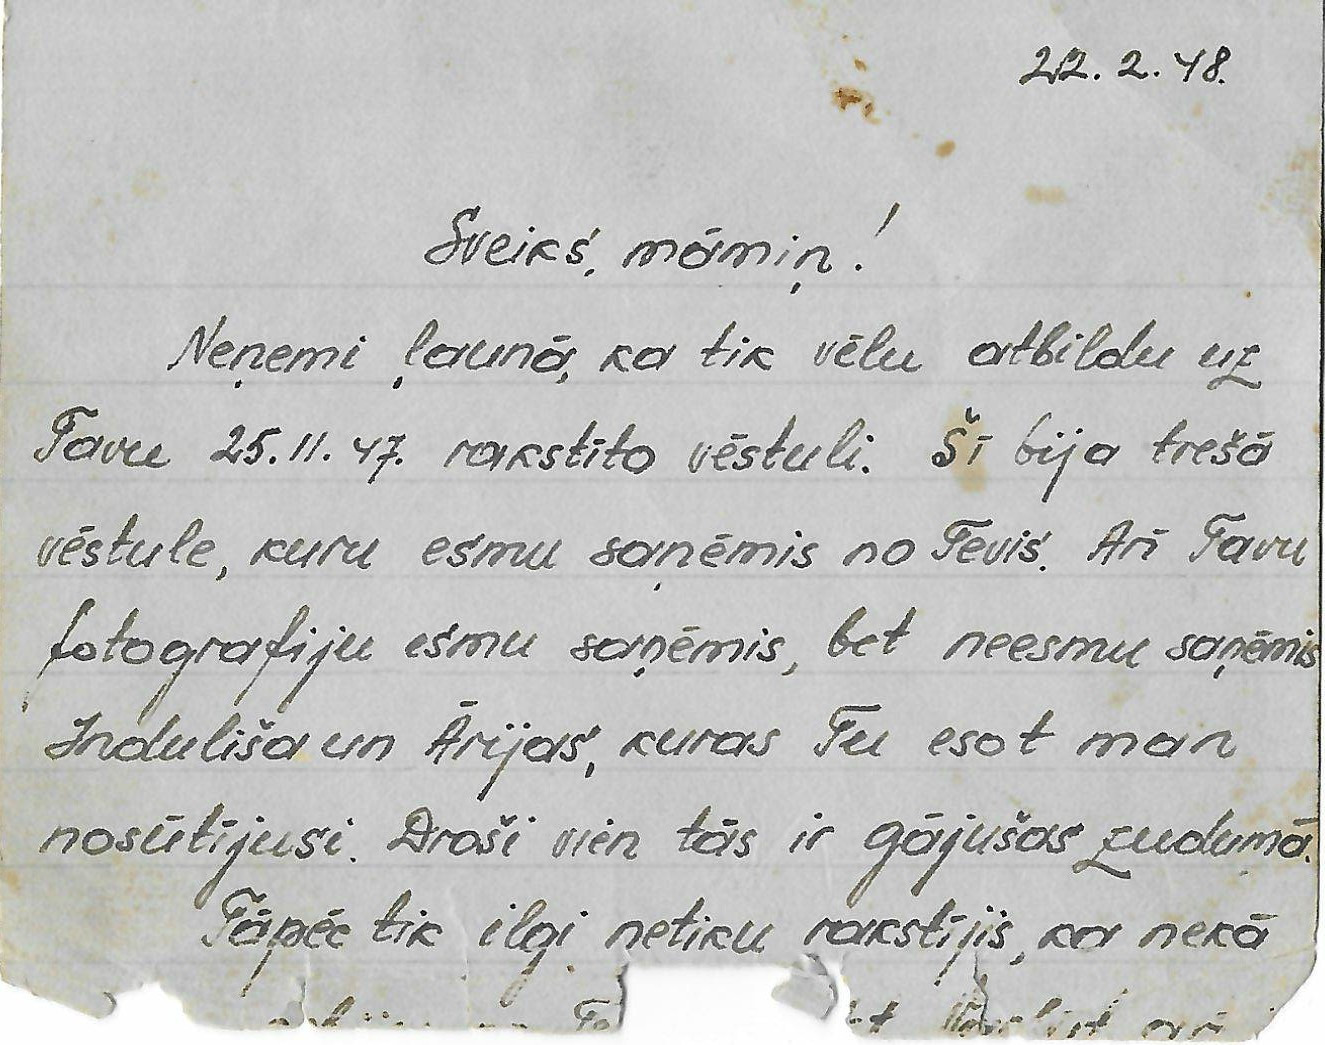 22.2.48.
Sveiks, māmiņ!
Neņemi ļaunā, ka tik vēlu atbildu uz
Tavu 25.11.47. rakstīto vēstuli. Šī bija trešā
vēstule, kuru esmu saņēmis no Tevis. Arī Tavu
fotografiju esmu saņēmis, bet neesmu saņēmis
Induliša un Ārijas, kuras Tu esot man
nosūtījusi. Droši vien tās ir gājušas zudumā.
Tāpēc tik ilgi netiku rakstījis, ka nekā